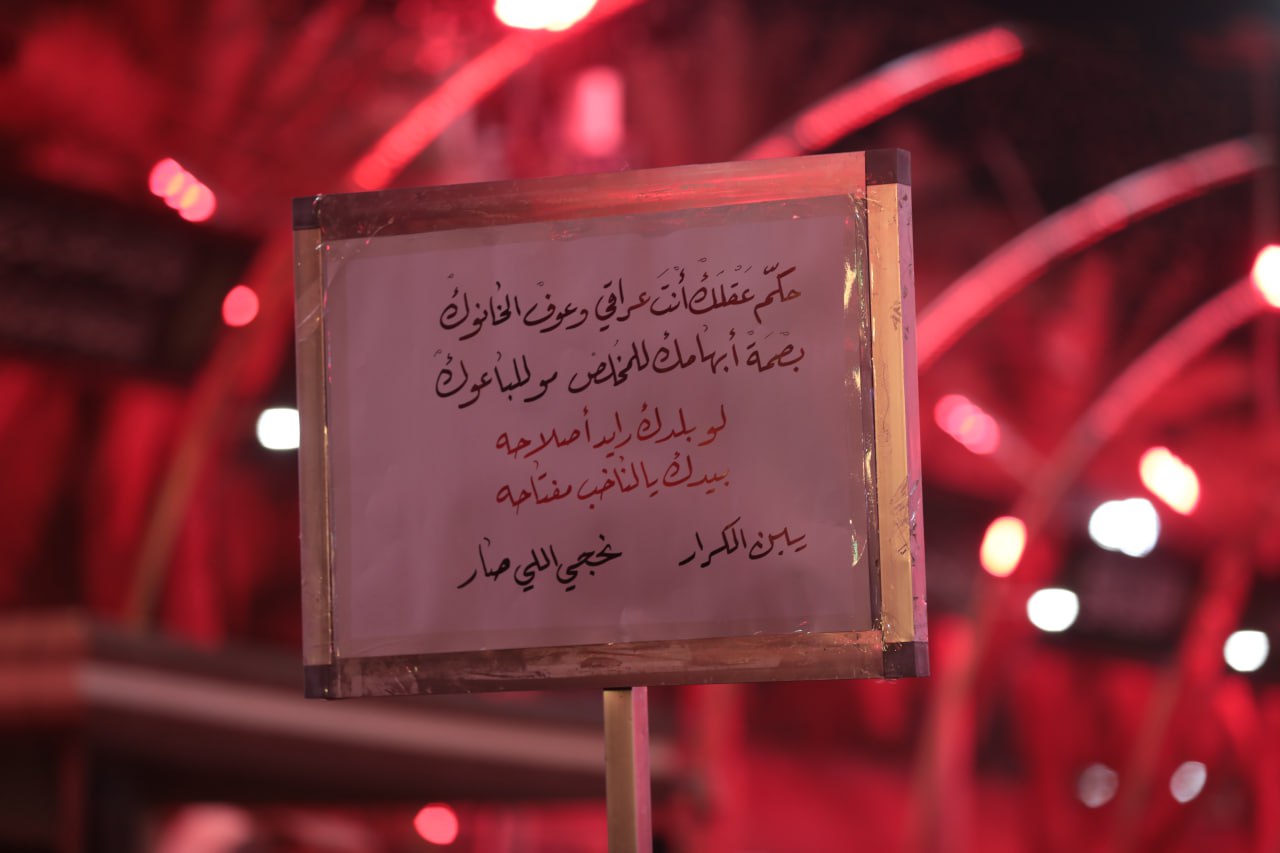 حكّم عَقْلَكْ أنْتَ عراقي وعوفْ الخانوكْ
بصْمَةْ أبهامك للمخلص مو للباعوكْ
لو بلدكْ رايد أصلاحه
بيدكْ يالناخب مفتاحه
يبن الكرار نحجي اللي صار